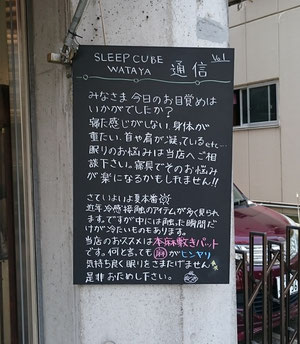 SLEEP CUBE
WATAYA 通信 Vol.1
みなさま 今日のお目覚めは
いかがでしたか?
寝た感じがしない、身体が
重たい、首や肩が凝っているetc...
眠りのお悩みは当店へご相
談下さい。寝具でそのお悩み
が楽になるかもしれません!!
さていよいよ夏本番
近年冷感接触のアイテムが多く見られ
ますが中には触った瞬間だ
けが冷たいものもあります。
当店のおススメは本麻敷きパット
です。何と言っても麻がヒンヤリ
気持ち良く眠りをさまたげません
是非おためし下さい。